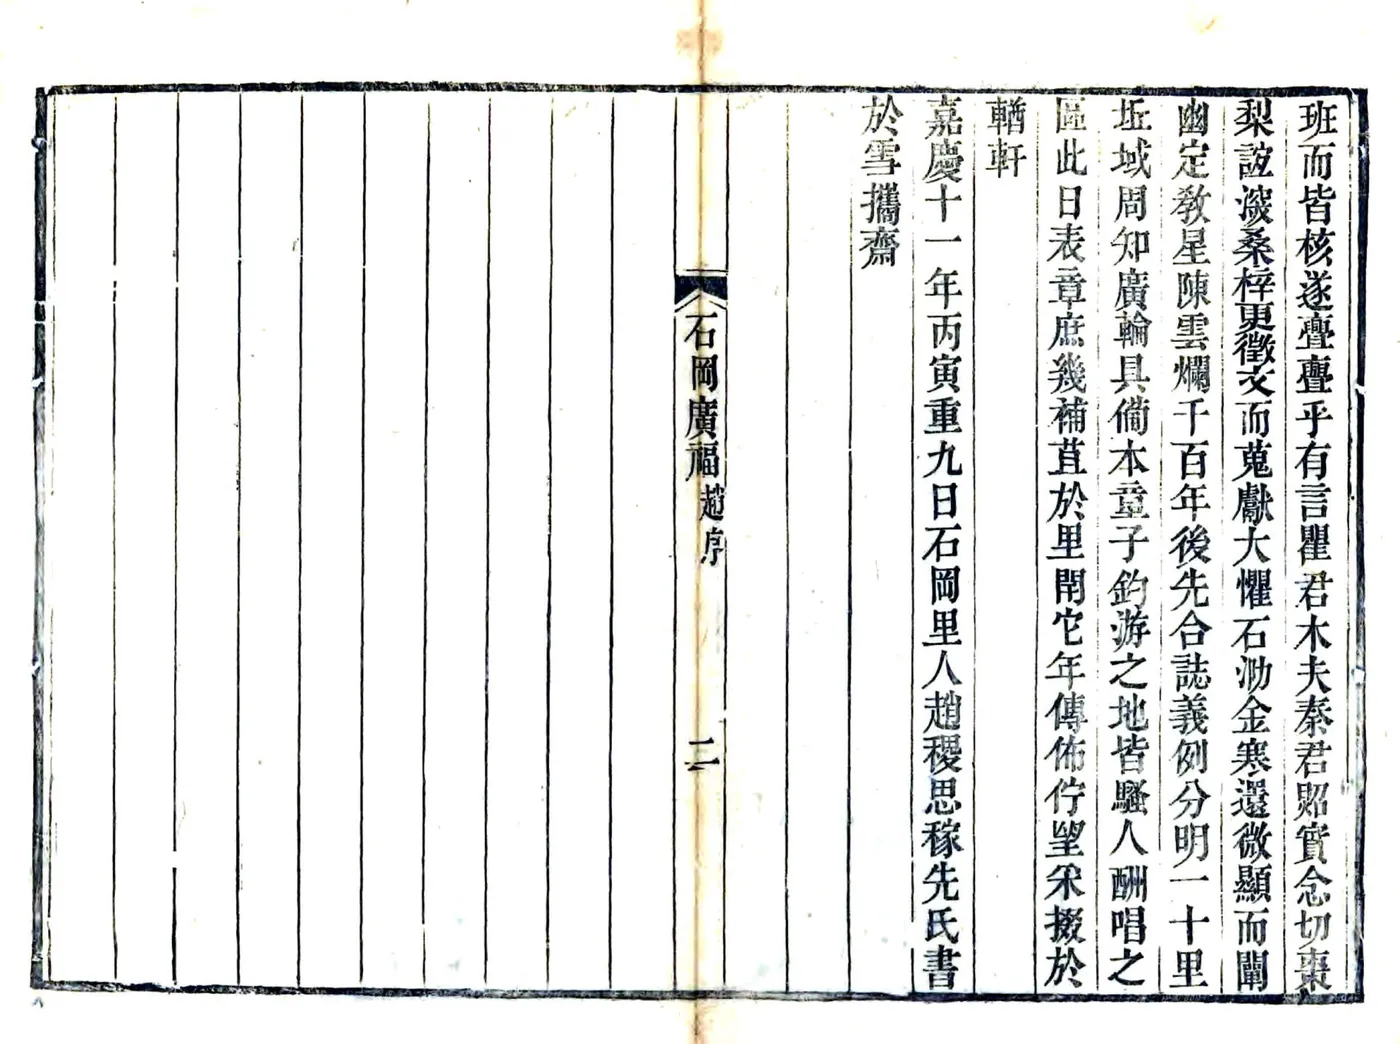 班而皆核遂亹亹乎有言瞿君木夫秦君照實念切棗
梨誼深桑梓更徵文而蒐獻大懼石泐金寒還微顯而闡
幽定敎星陳雲爛千百年後先合誌義例分明一十里
坵域周知廣輪具備本童子釣游之地皆騷人酬唱之
區此日表章庶幾補苴於里閈它年傳佈佇望采掇於
輶軒
嘉慶十一年丙寅重九日石岡里人趙稷思稼先氏書
於雪攜齋
石岡廣福
趙序
二